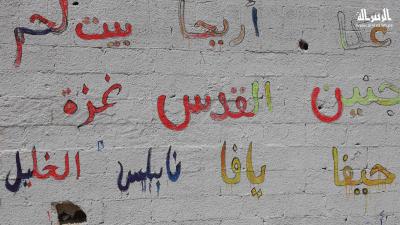 الرسالة
عكا أريحا بيت لحم
جنين القدس غزة
حيفا يافا نابلس الخليل